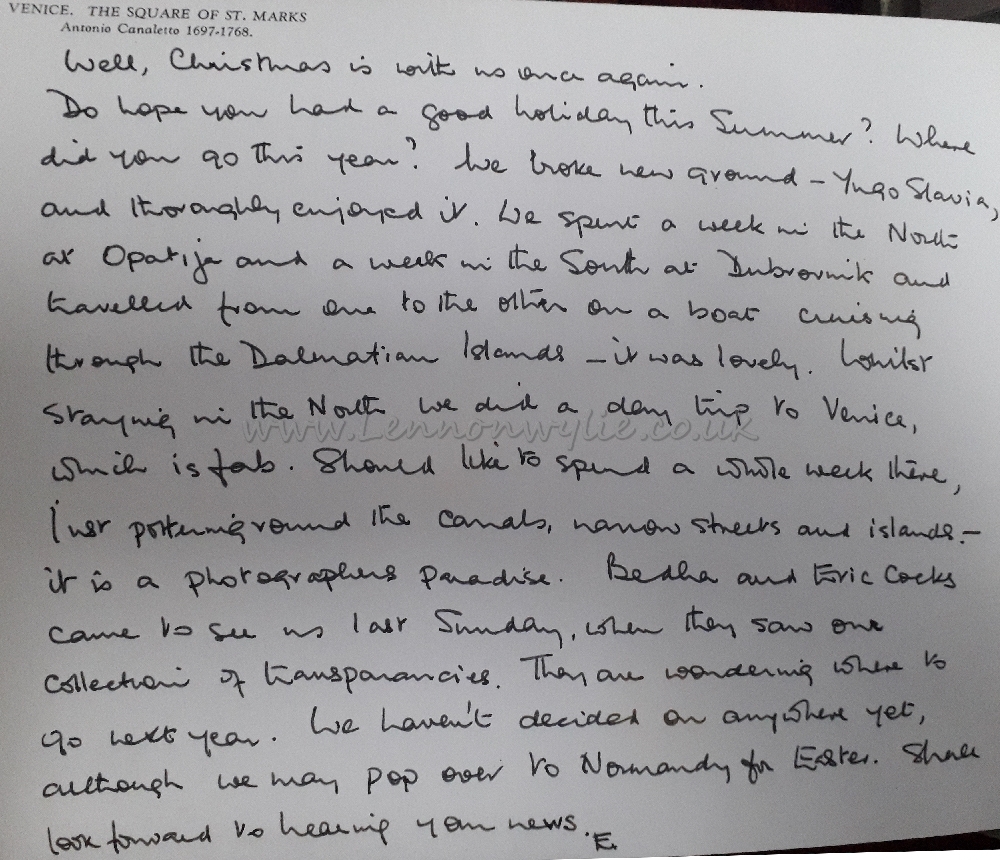 VENICE. THE SQUARE OF ST. MARKS
Antonio Canaletto 1697-1768.
Well, Christmas is with us once again.
Do hope you had a good holiday this Summer? Where
did you go this year? We broke new ground – Yugo Slavia,
and thoroughly enjoyed it. We spent a week in the North
at Opatija and a week in the South at Dubrovnik and
travelled from one to the other on a boat cruising
through the Dalmatian Islands – it was lovely. Whilst
staying in the North we did a day trip to Venice,
which is fab. Should like to spend a whole week there,
just pottering round the canals, narrow streets and islands –
it is a photographers paradise. Bedha and Eric Cocks
came to see us last Sunday, when they saw our
collection of transparancies. They are wondering where to
go next year. We haven't decided on anywhere yet,
although we may pop over to Normandy for Easter. Shall
look forward to hearing your news. E.
www.Lennonwylie.co.uk